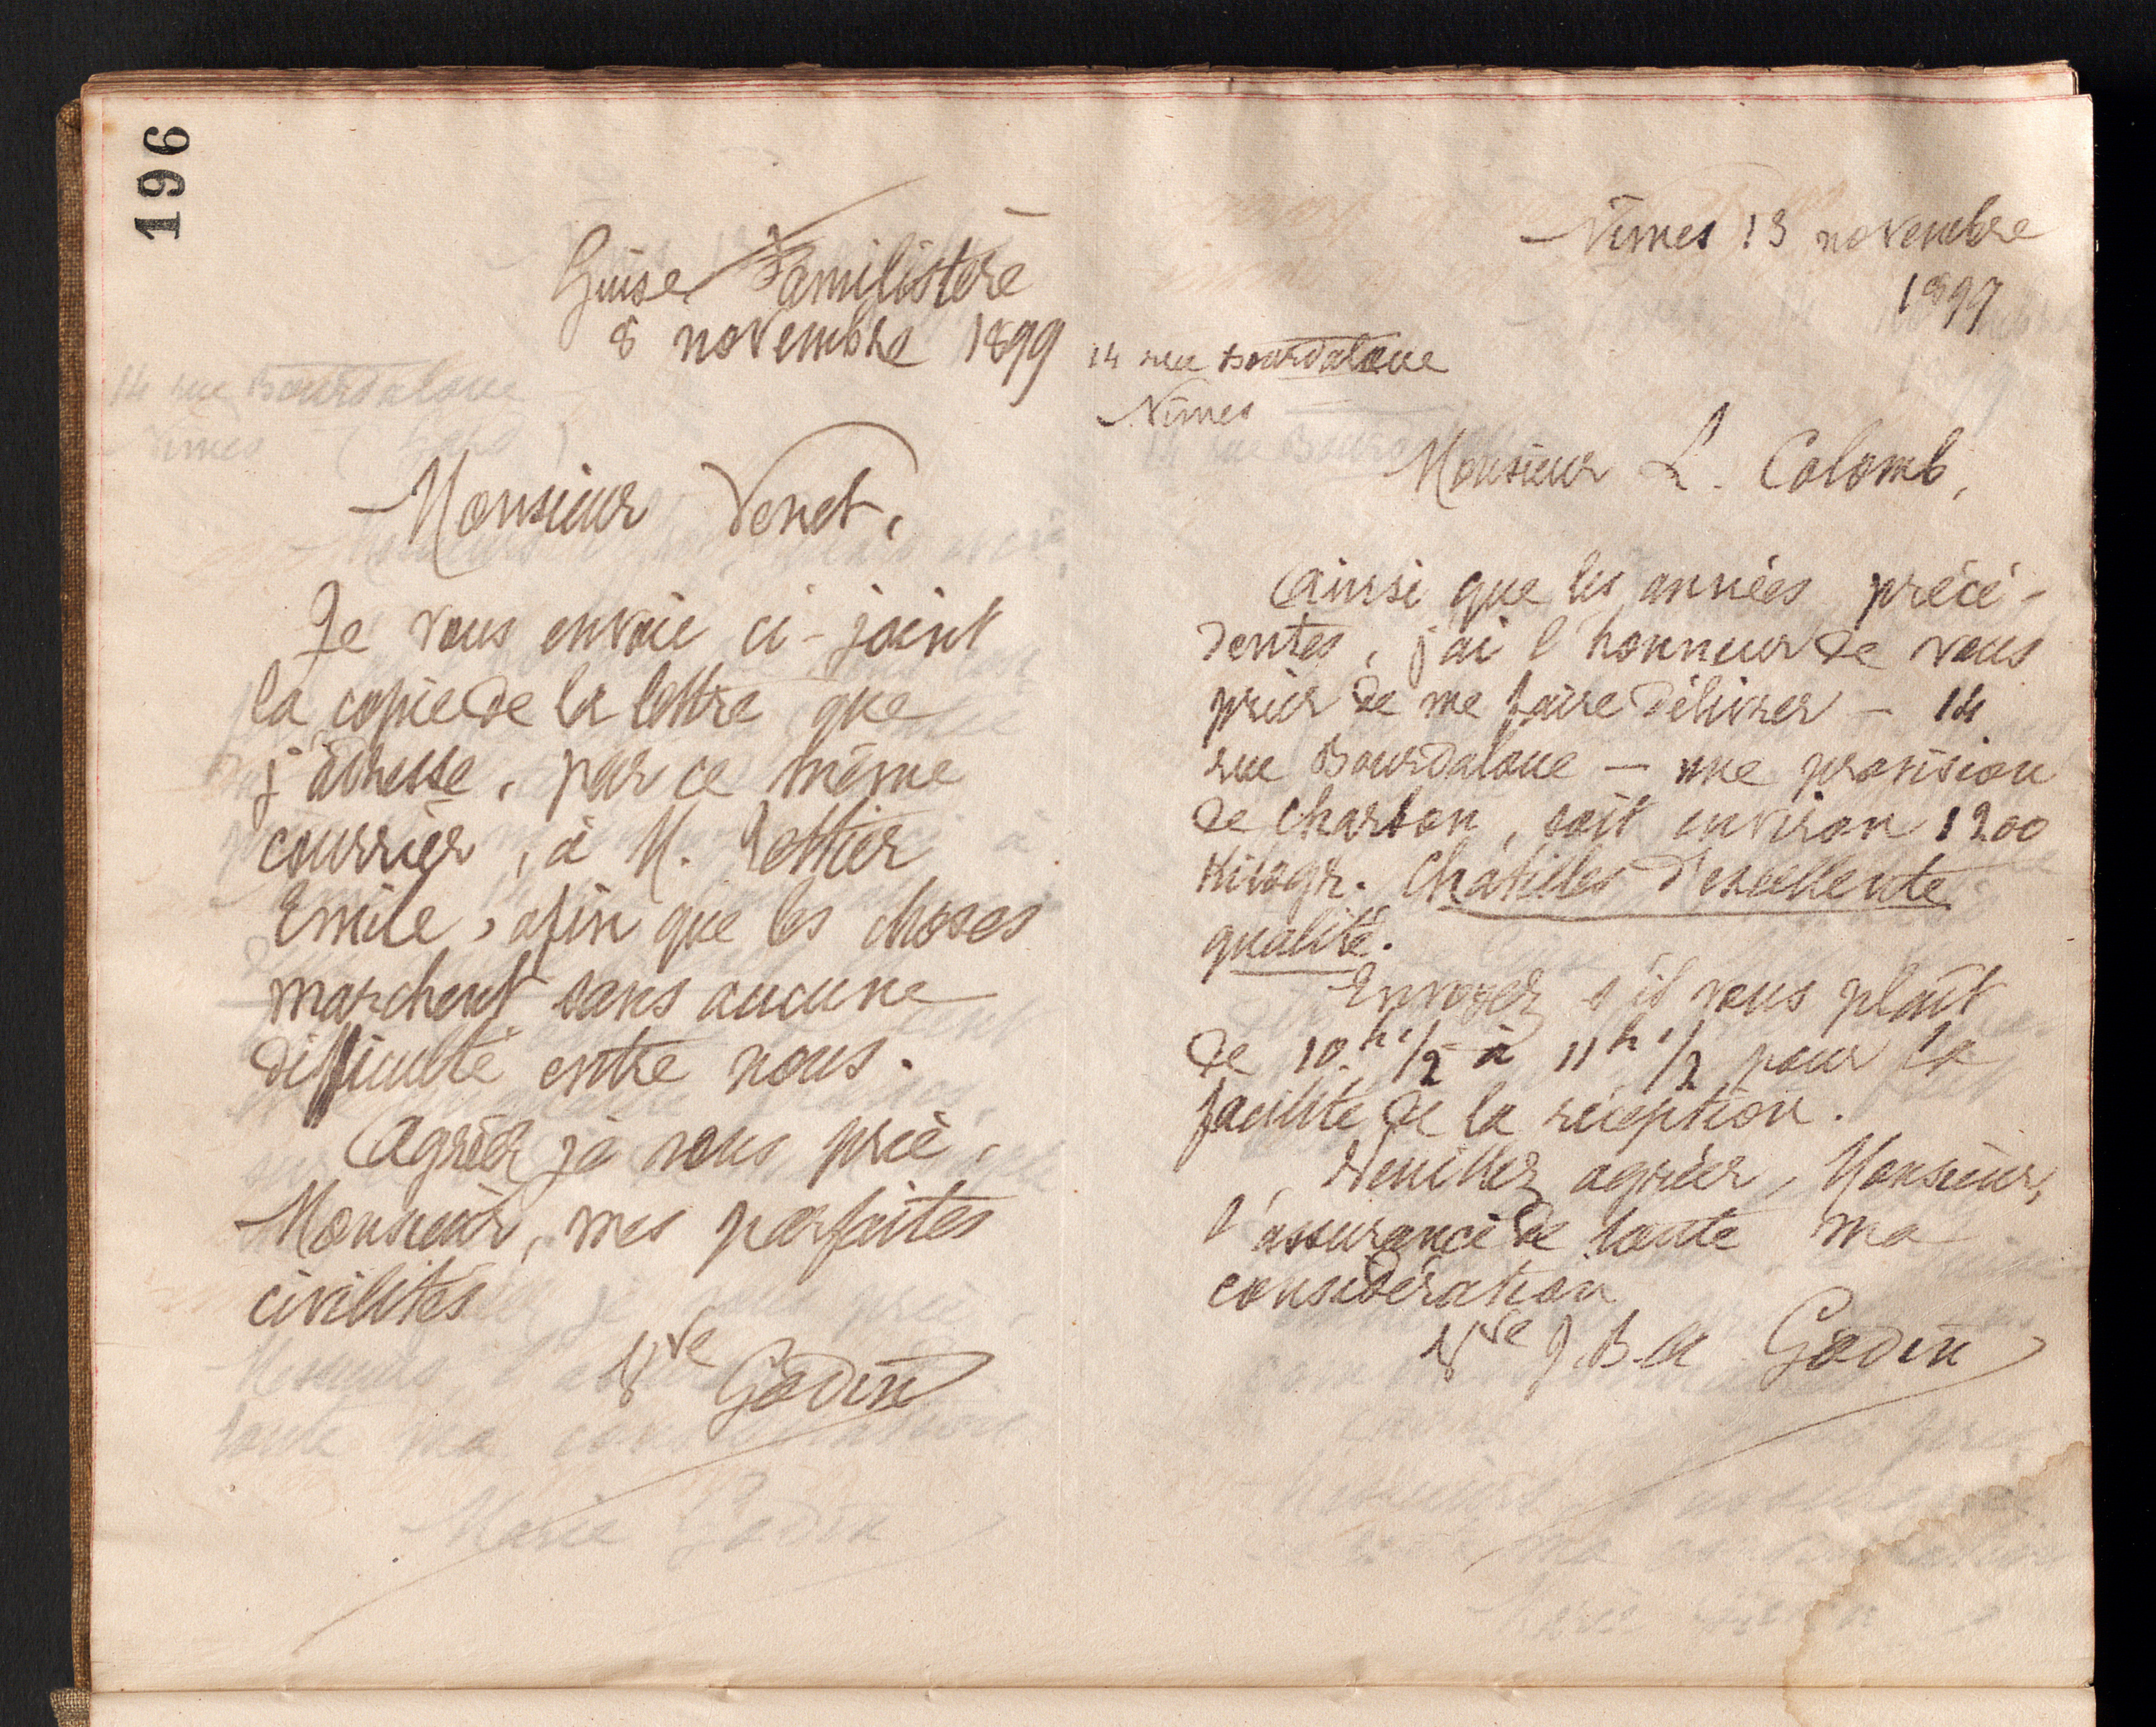 196
Guise Familistère
8 novembre 1899
Monsieur Venet,
Je vous envoie ci-joint
la copie de la lettre que
j'adresse, par ce même
courrier, à M.
Emile, afin que les choses
marchent sans aucune
difficulté entre nous.
Agréez je vous prie,
Monsieur, mes parfaites
civilités
Vve Godin
Nîmes 13 novembre
1899
14 rue Bourdaloue
Nîmes
Monsieur L. Colomb,
Ainsi que les années précé-
dentes, j'ai l'honneur de vous
prier de me faire délivrer - 14
rue Bourdaloue - une provision
de charbon, soit environ 1200
Kilogr. Chatilles d'excellente
qualité.
Envoyez s'il vous plaît
de 10h 1/2 à 11h 1/2 pour la
facilité de la réception.
Veuillez agréer, Monsieur,
l'assurance de toute ma
considération
Vve J. B. A. Godin